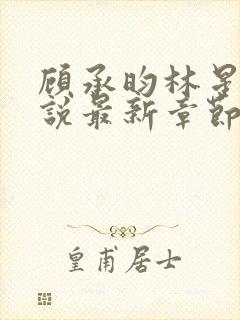 顾承昀林星
說最新章節
皇甫居士